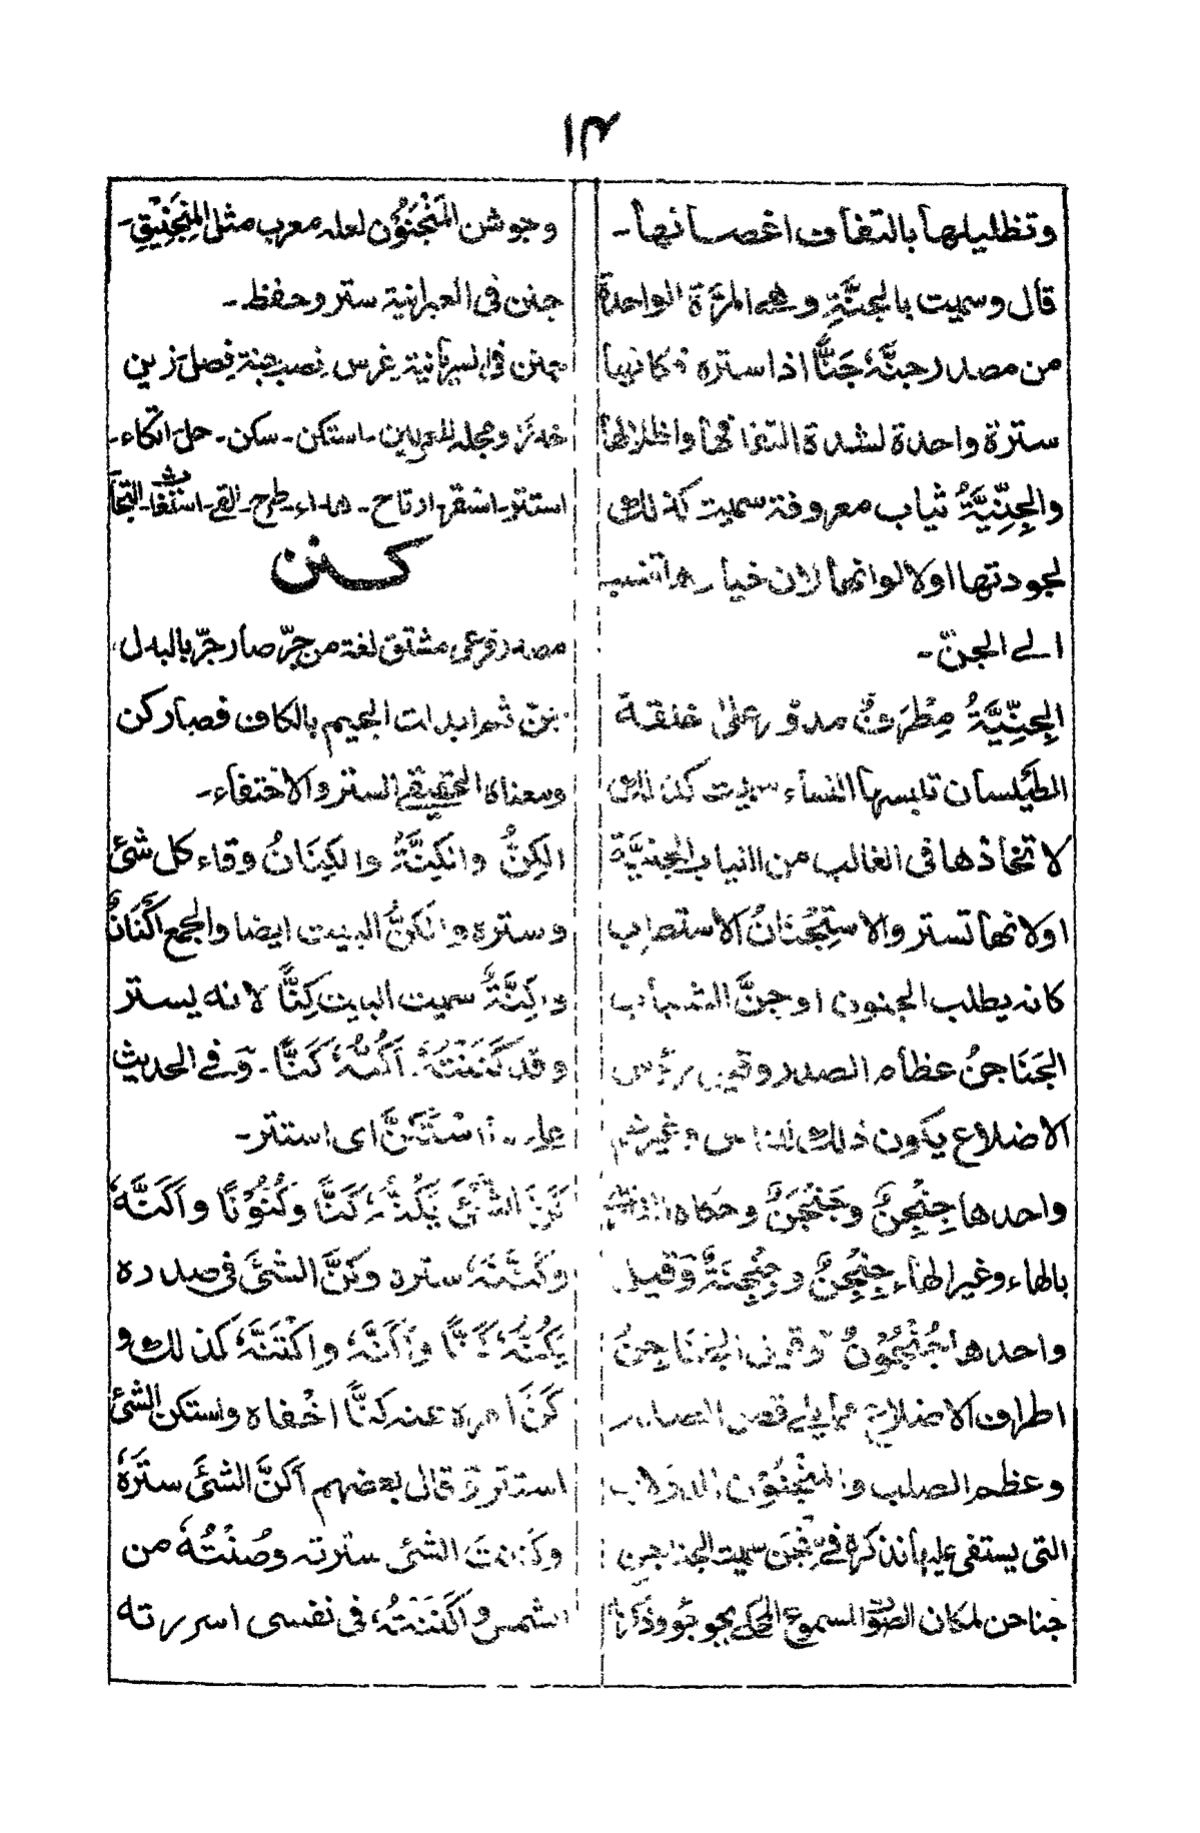 ١٣
وتظليلها بالتفاف اغصانها۔
قال وسميت بالجنَّةِ وهى المرّة الواحدة
من مصدر جنَّهٗ جَنًّا اذا ستره فكانها
سترة واحدة لشدة التفافها واظلالها
والجِنِّيَّةُ ثياب معروفة سميت كذلك
لجودتها اولالوانها لان خيارها تنسب
الى الجنّ۔
الجِنِّيَّةُ مِطْرَفٌ مدوّر على خلقة
الطَيلسان تلبسها النساء سميت كذلك
لاتخاذها فى الغالب من الثياب الجنيَّة
اولانها تستر والاستِجْنَانُ الاستطراب
كانه يطلب الجنون اوجنَّ الشباب
الجَنَاجنُ عظام الصدر وقيل رؤس
الاضلاع يكون ذلك للناس وغيرهم
واحدها جِنْجِنٌ وجَنْجَنٌ وحكاه
بالهاء وغير الهاء جِنْجِنٌ وجِنْجِنَةٌ وَقيل
واحدها جُنْجُوْنٌ وقيل الجَنَاجِنُ
اطراف الاضلاع مما يلى قص الصدر
وعظم الصلب والمَنْجَنُوْن الدولاب
التى يستقى عليها نذكره فى مجن سميت الجناجن
جناجن لمكان الصوت المسموع
وجوشن المَنْجَنُوْن لعله معرب مثل المِنْجَنِيْق۔
جنن فى العبرانية ستر وحفظ۔
جنن فى السريانية غرس نصب جنة فصل زين
استكن۔ سكن۔ حل۔ اتكاء۔
استتر۔ استقر۔ ارتاح۔ طرح۔ القى۔
كنن
مصدر فرعى مشتق لغة من جرّ صار جرّ بالبدل
جنن ثم ابدلت الجيم بالكاف فصار كن
ومعناه الحقيقى الستر والاختفاء۔
الكِنُّ والكِنَّةُ والكِنَانُ وقاء كل شئ
وستره والكنُّ البيت ايضا والجمع اَكْنَانٌ
واكِنَّةٌ سميت البيت كِنًّا لانه يستر
وقد كَنَنْتُهٗ اَكُنُّهٗ كَنًّا۔ وَفى الحديث
اسْتَكَنَّ اى استتر۔
كَنَّ الشَّئَ يَكُنُّهٗ كَنًّا وَكُنُوْنًا واَكَنَّهٗ
وكَنَّنَهٗ ستره وكَنَّ الشئَ فى صدره
يَكُنُّهٗ كَنًّا وَاَكَنَّهٗ واكْتَنَّهٗ كذلك و
كَنَّ امره عنه كنًّا اخْفاه واستكن الشئ
استتر قال بعضهم اَكَنَّ الشئَ ستَرَهٗ
وكننت الشئ سترته وصُنْتُهٗ من
الشمس واَكْنَنْتُهٗ فى نفسى اسررته